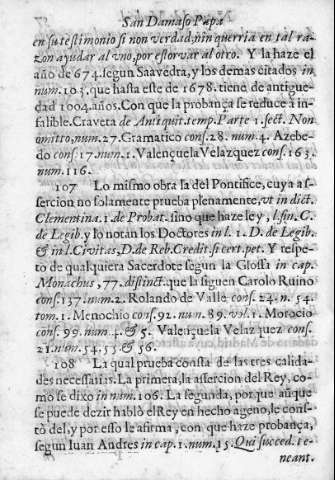 San Damaso Papa
en su testimonio si non verdad, nin querria en tal ra-
zon ayudar al vno, por estorvar al otro. Y la haze el
año de 674. segun Saavedra, y los demas citados in
num. 103. que hasta este de 1678. tiene de antigue-
dad 1004. años. Con que la probança se reduce à in-
falible. Craveta de Antiquit. temp. Parte 1. sect. Non
omitto, num. 27. Gramatico cons. 28. num. 4. Azebe-
do cons. 17. num. 1. Valençuela Velazquez cons. 163.
num. 116.
107 Lo mismo obra la del Pontifice, cuya a-
ssercion no solamente prueba plenamente, vt in dict.
Clementina. 1. de Probat. sino que haze ley, l. fin. C.
de Legib. y lo notan los Doctores in l. 1. D. de Legib.
& in l. Civitas, D. de Reb. Credit. si cert. pet. Y respe-
to de qualquiera Sacerdote segun la Glossa in cap.
Monachus, 77. distinct. que la siguen Carolo Ruino
cons. 137. num. 2. Rolando de Valle cons. 24. n. 54.
tom. 1. Menochio cons. 92. num. 89. vol. 1. Morocio
cons. 99. num. 4. & 5. Valençuela Velazquez cons.
21. num. 54. 55. & 56.
108 La qual prueba consta de las tres calida-
des necessarias. La primera, la assercion del Rey, co-
mo se dixo in num. 106. La segunda, porque aunque
se puede dezir hablò el Rey en hecho ageno, le cons-
tò del, y por esso le afirma, con que haze probança,
segun Iuan Andres in cap. 1. num. 15. Qui succed. te-
neant.